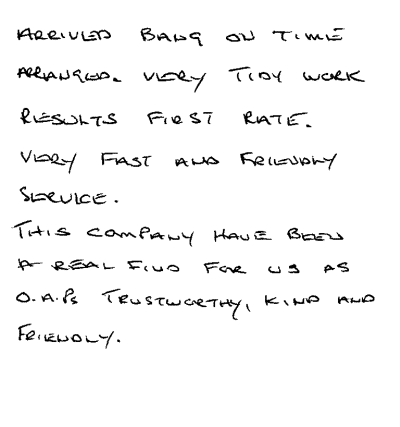 ARRIVED BANG ON TIME
ARRANGED. VERY TIDY WORK
RESULTS FIRST RATE.
VERY FAST AND FRIENDLY
SERVICE.
THIS COMPANY HAVE BEEN
A REAL FIND FOR US AS
O.A.Ps TRUSTWORTHY, KIND AND
FRIENDLY.